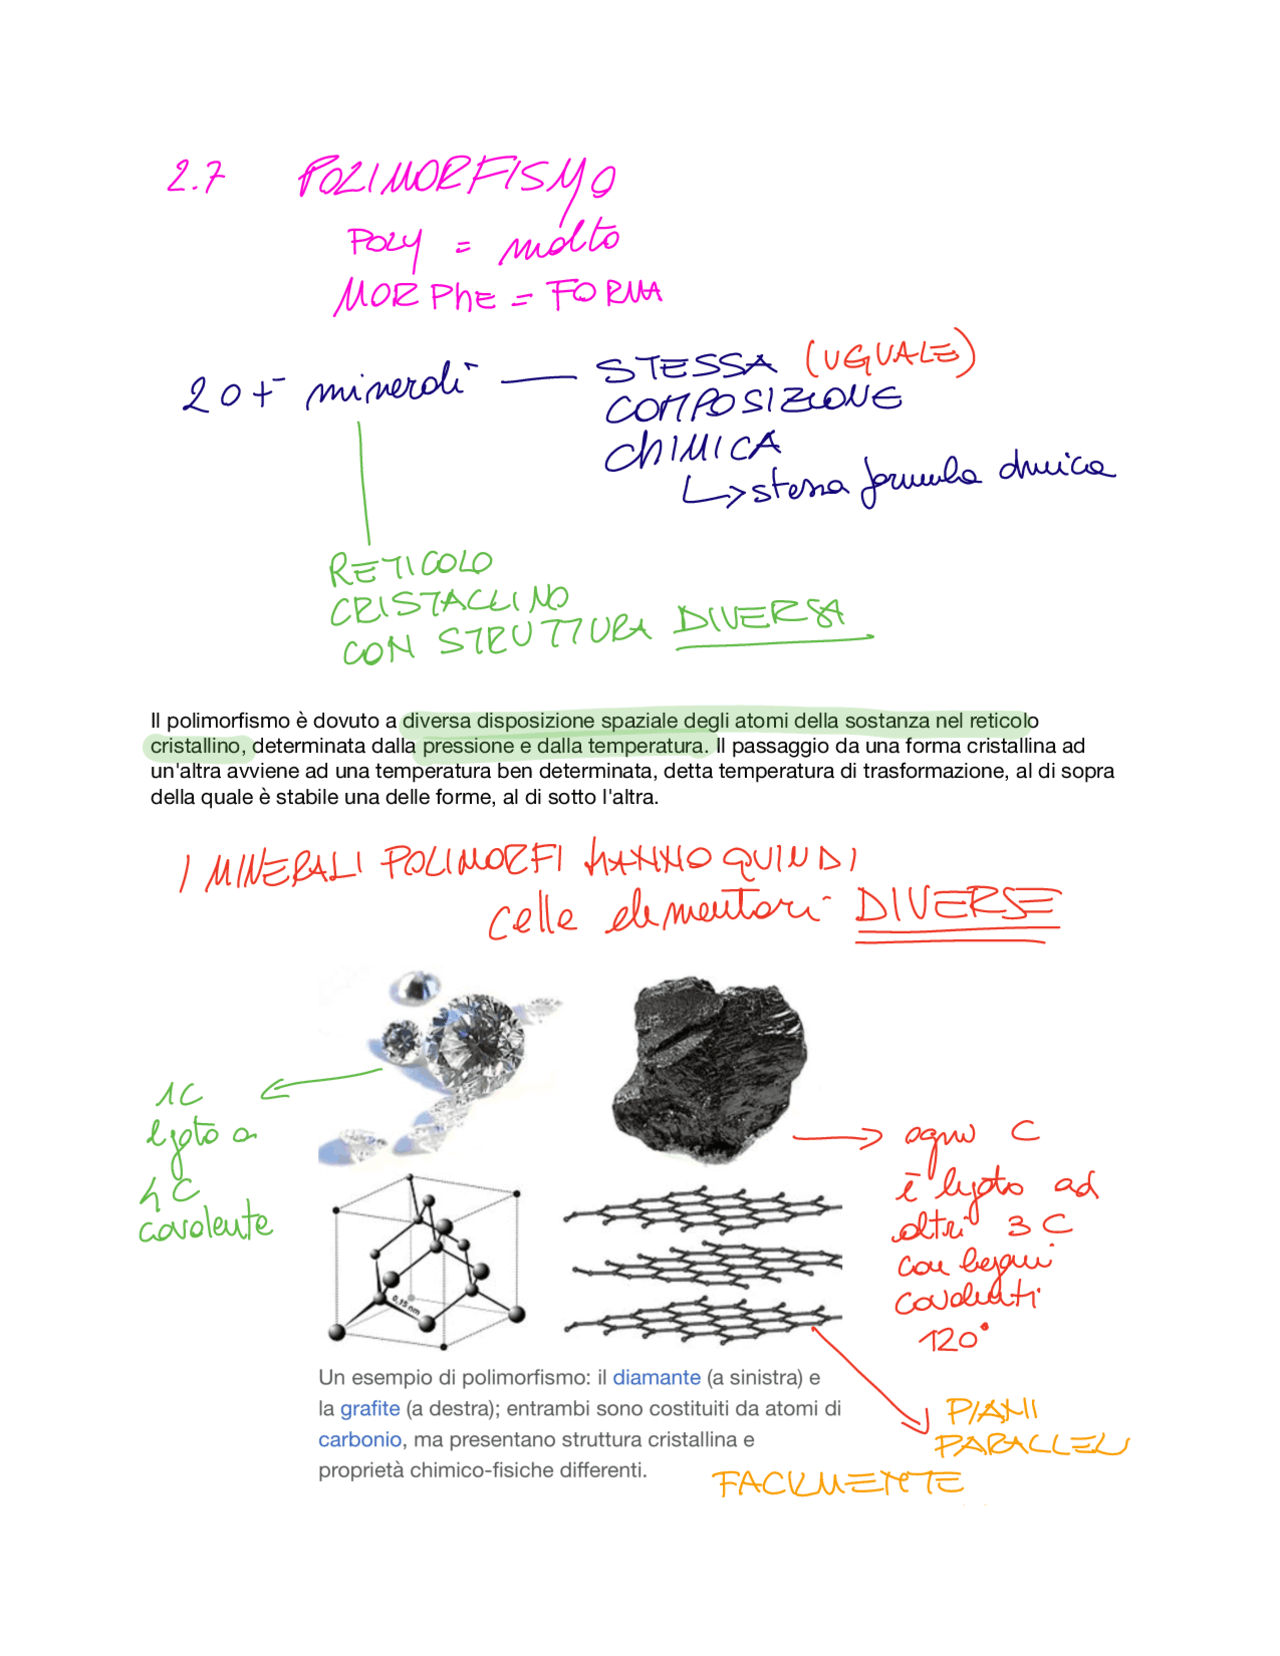 2.7 POLIMORFISMO
POLY = molto
MORPHE = FORMA
2 o + minerali — STESSA (UGUALE)
COMPOSIZIONE
CHIMICA
↳ stessa formula chimica
RETICOLO
CRISTALLINO
CON STRUTTURA DIVERSA
Il polimorfismo è dovuto a diversa disposizione spaziale degli atomi della sostanza nel reticolo
cristallino, determinata dalla pressione e dalla temperatura. Il passaggio da una forma cristallina ad
un'altra avviene ad una temperatura ben determinata, detta temperatura di trasformazione, al di sopra
della quale è stabile una delle forme, al di sotto l'altra.
I MINERALI POLIMORFI HANNO QUINDI
celle elementari DIVERSE
1C
legato a
4C
covalente
ogni C
è legato ad
altri 3 C
con legami
covalenti
120°
0,15 nm
Un esempio di polimorfismo: il diamante (a sinistra) e
la grafite (a destra); entrambi sono costituiti da atomi di
carbonio, ma presentano struttura cristallina e
proprietà chimico-fisiche differenti.
PIANI
PARALLELI
FACILMENTE